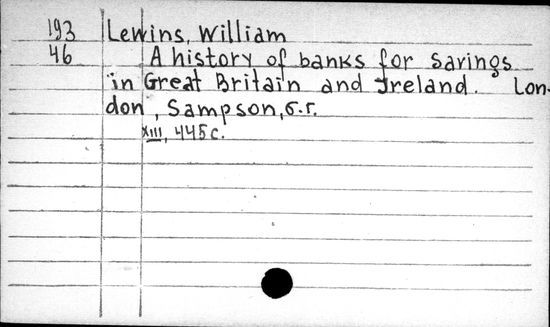 193 Lewins, William
46 A history of banks for savings
in Great Britain and Ireland. Lon-
don, Sampson, б.г.
XIII, 445 c.